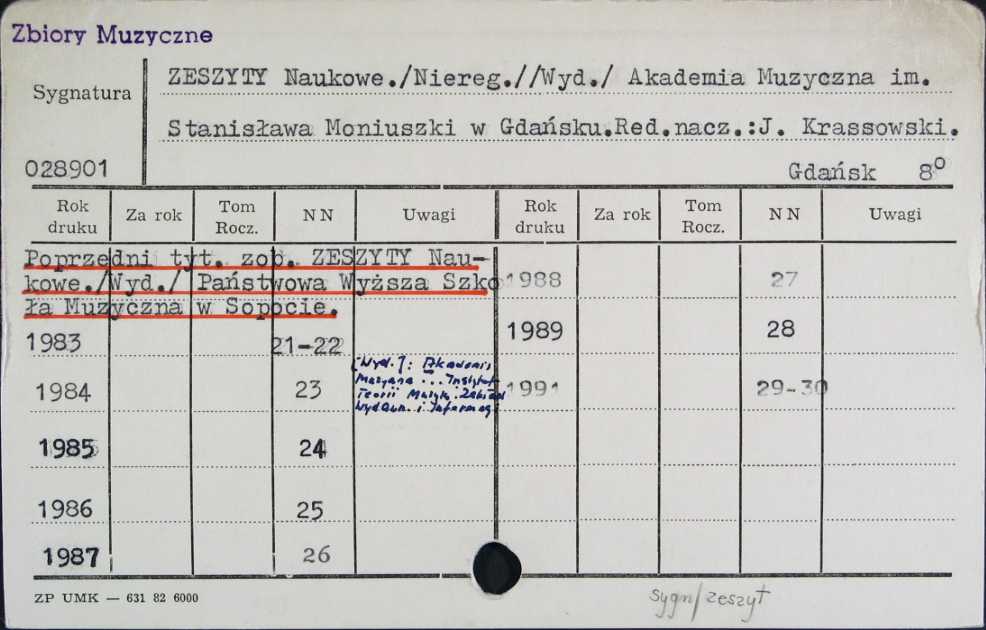 Zbiory Muzyczne
Sygnatura
ZESZYTY Naukowe./Niereg.//Wyd./ Akademia Muzyczna im.
Stanisława Moniuszki w Gdańsku.Red.nacz.:J. Krassowski.
028901
Gdańsk 8o
Rok druku Za rok Tom Rocz. NN Uwagi Rok druku Za rok Tom Rocz. NN Uwagi
Poprzedni tyt. zob. ZESZYTY Nau-
kowe./Wyd./ Państwowa Wyższa Szko
ła Muzyczna w Sopocie.
1983 21-22
[Wyd.]: Akademia
Muzyczna ... Instytut
Teorii Muzyki. Zakład
Wydawn. i Informacji
1984 23
1985 24
1986 25
1987 26
1988 27
1989 28
1991 29-30
ZP UMK — 631 82 6000
sygn/zeszyt